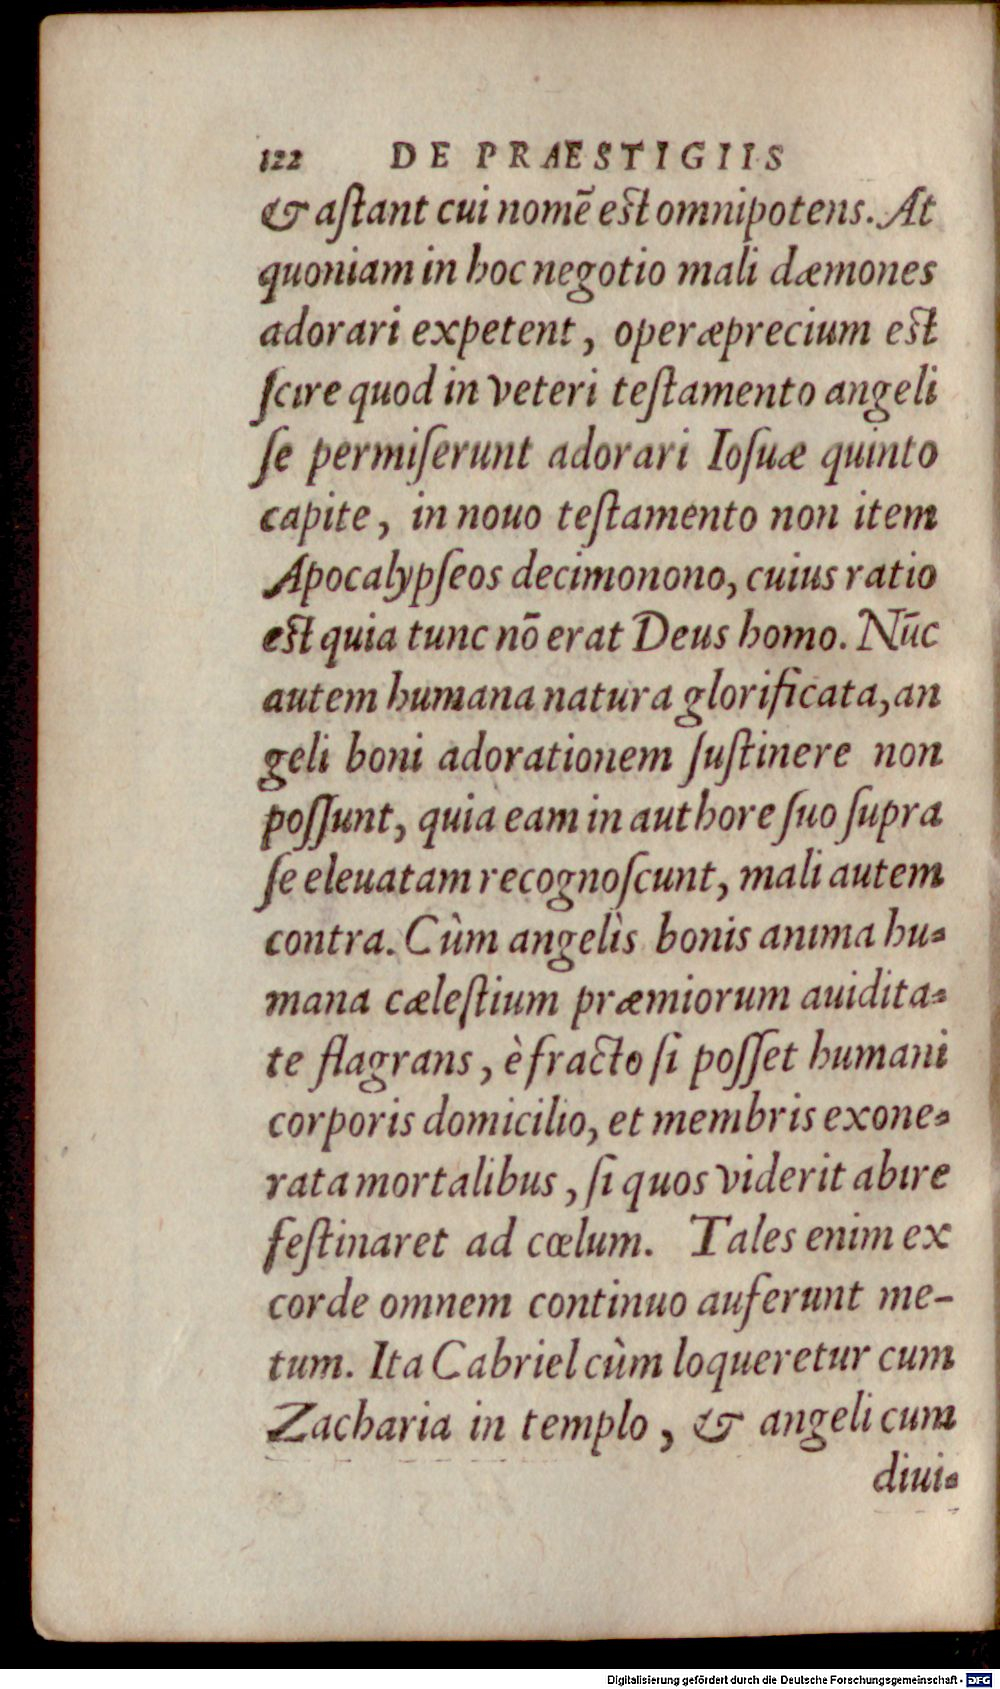 122 DE PRAESTIGIIS
& aſtant cui nomẽ est omnipotens. At
quoniam in hoc negotio mali dæmones
adorari expetent, operæprecium est
ſcire quod in veteri teſtamento angeli
ſe permiſerunt adorari Ioſuæ quinto
capite, in nouo teſtamento non item
Apocalypſeos decimonono, cuius ratio
est quia tunc nō erat Deus homo. Nūc
autem humana natura glorificata, an
geli boni adorationem ſuſtinere non
poſſunt, quia eam in authore ſuo ſupra
ſe eleuatam recognoſcunt, mali autem
contra. Cùm angelis bonis anima hu-
mana cæleſtium præmiorum auidita-
te flagrans, è fracto ſi poſſet humani
corporis domicilio, et membris exone-
rata mortalibus, ſi quos viderit abire
feſtinaret ad cœlum. Tales enim ex
corde omnem continuo auferunt me-
tum. Ita Cabriel cùm loqueretur cum
Zacharia in templo, & angeli cum
diui-
Digitalisierung gefördert durch die Deutsche Forschungsgemeinschaft - DFG